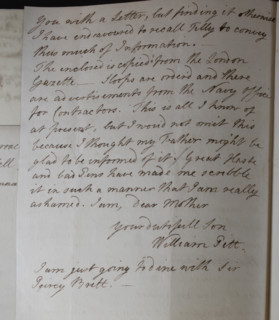 you with a Letter, but finding it otherwise
I have endeavored to recall Filly to convey
this much of Information.
The enclosed is copied from the London
Gazette — Sloops are ordered and there
are advertisements from the Navy Office
for Contractors. This is all I know of
at present, but I would not omit this
because I thought my Father might be
glad to be informed of it. Great Haste
and bad Pens have made me scribble
it in such a manner that I am really
ashamed. I am, Dear Mother
Your dutifull Son
William Pitt.
I am just going to dine with Sir
Peircy Brett. —